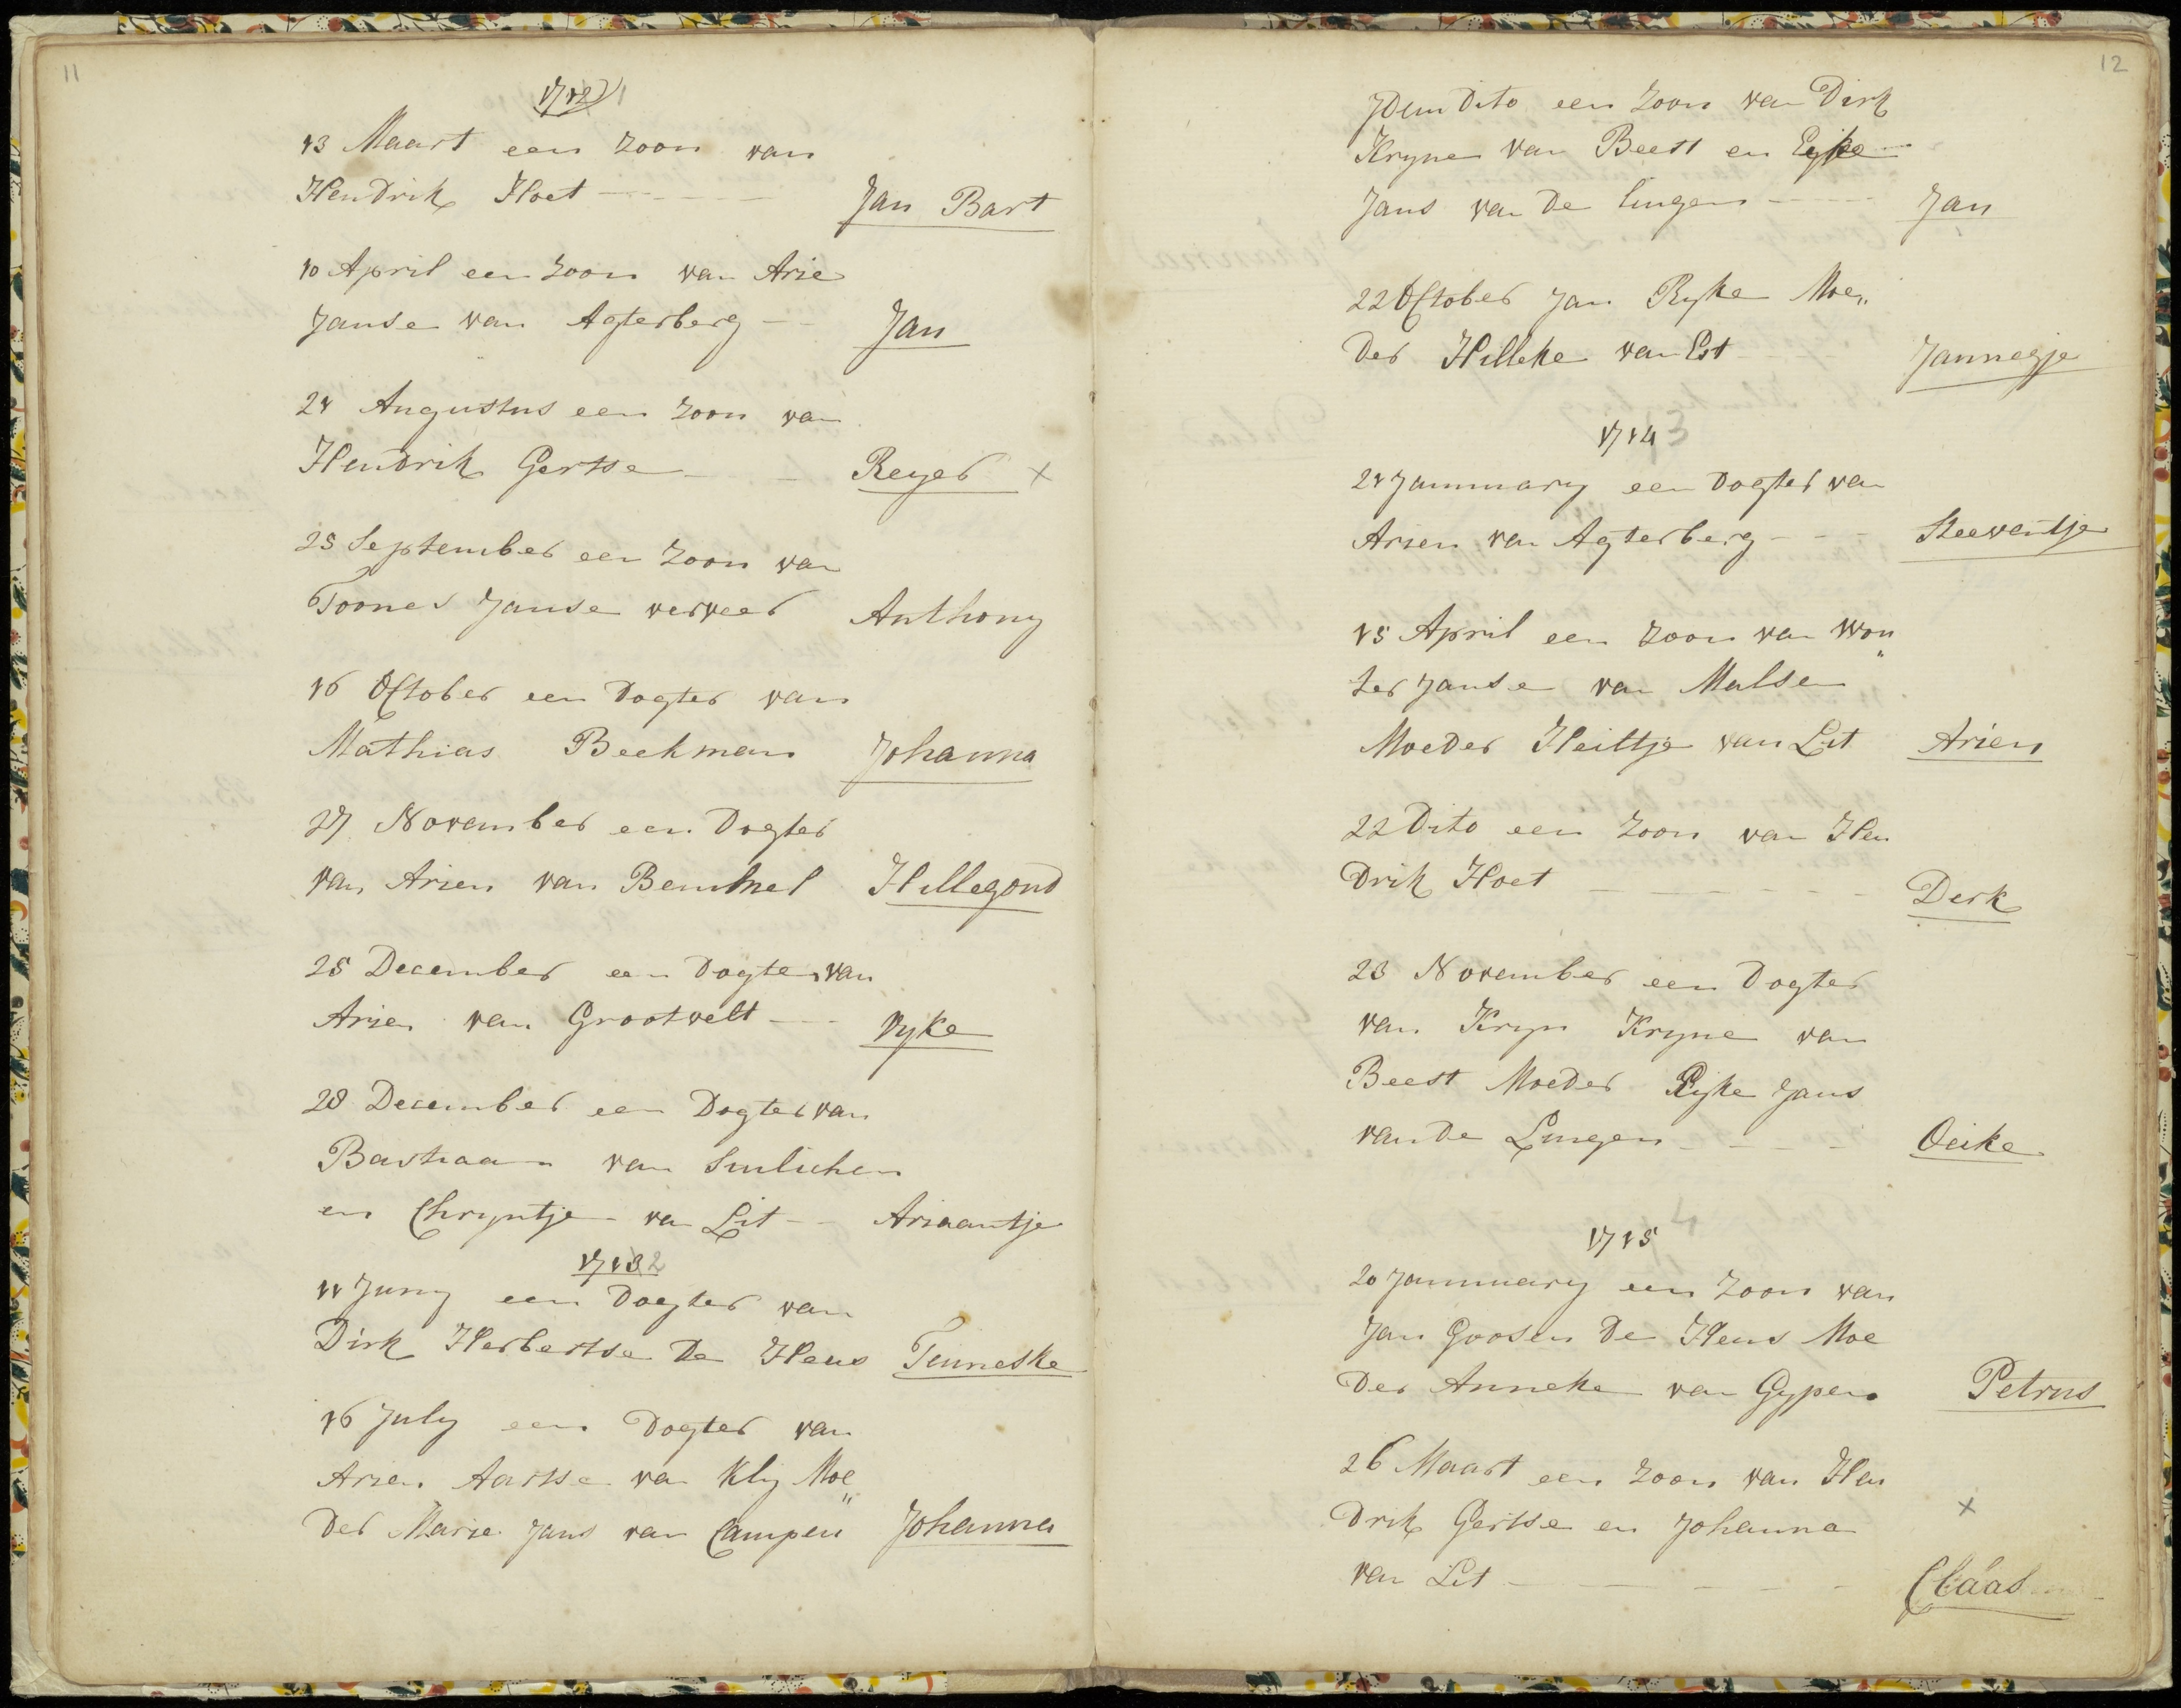 11
1712 1
13 Maart een zoon van
Hendrik Hoet - - - - - Jan Bart
10 April een zoon van Arie
Janse van Agterberg - - Jan
21 Augustus een zoon van
Hendrik Gertse - - Reyer x
25 September een zoon van
Toones Janse verveer Anthony
16 October een Dogter van
Mathias Beekman Johanna
27 November een Dogter
van Arien van Bemmel Hillegond
25 December een Dogter van
Arien van Grootvelt - - Vyke
28 December een Dogter van
Bastiaan van
en Chryntje van Lit - - Ariaantje
1713 2
11 Juny een Dogter van
Dirk Herbertse De Heus Teuneske
16 July een Dogter van
Arien Aartse van Kly Moe„
der Marie Jans van Campen Johanna
12
Idem Dito een zoon van Dirk
Kryne van Beest en Eyke
Jans van de Lingen - - - - Jan
22 October Jan Ryke Moe„
der Hilleke van Est Jannegje
1714 3
21 Jannuary een Dogter van
Arien van Agterberg - - - Steeventje
15 April een zoon van Wou„
ter Janse van Malsen
Moeder Heiltje van Lit Arien
22 Dito een zoon van Hen
drik Hoet - - - - - - Derk
23 November een Dogter
van Kryn Kryne van
Beest Moeder Eyke Jans
van de Lingen - - - - Oeike
1715 4
20 Jannuary een zoon van
Jan Goosen De Heus Moe
der Anneke van Gypen Petrus
26 Maart een zoon van Hen
drik Gertse en Johanna x
van Lit - - - - - - Claas